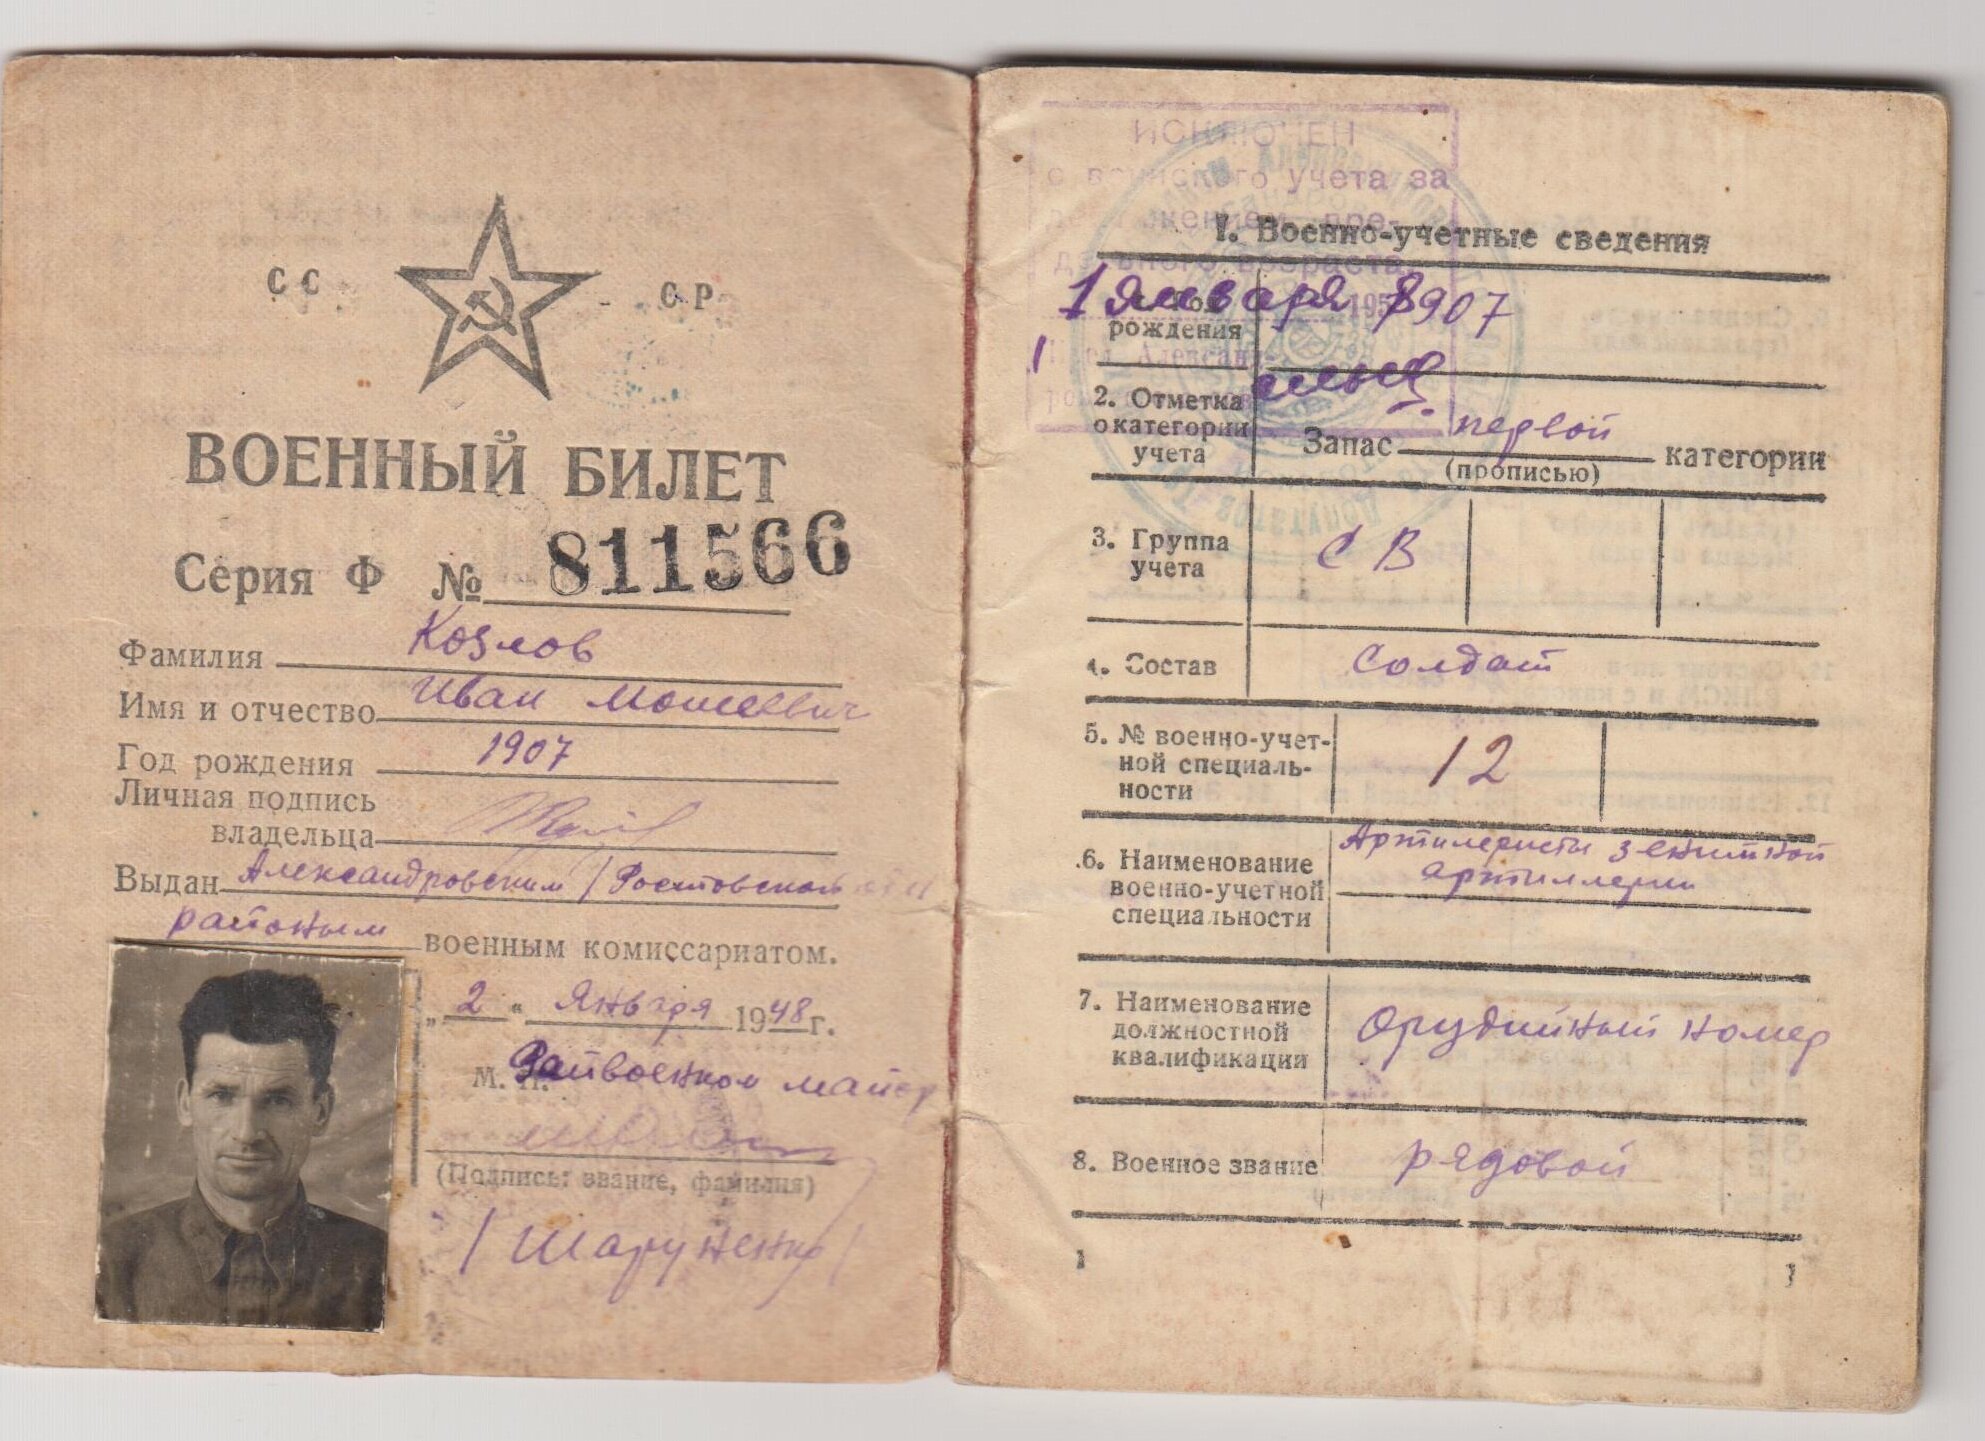 СС СР
ВОЕННЫЙ БИЛЕТ
Серия Ф № 811566
Фамилия Козлов
Имя и отчество Иван Моисеевич
Год рождения 1907
Личная подпись
владельца
Выдан Александровским / Ростовской
районым военным комиссариатом.
„2" Января 1948 г.
М. П. Райвоенком майор
(Подпись: звание, фамилия)
/ Шаруненко /
ИСКЛЮЧЕН
с воинского учета за
достижением пре-
дельного возраста
1 января 195
1. Военно-учетные сведения
1. Год
рождения 1907
2. Отметка
о категории
учета
Запас первой категории
(прописью)
3. Группа
учета
СВ
4. Состав солдат
5. № военно-учет-
ной специаль-
ности
12
6. Наименование
военно-учетной
специальности
Артилеристы зенитной
артиллерии
7. Наименование
должностной
квалификации
Орудийный номер
8. Военное звание рядовой
1
1